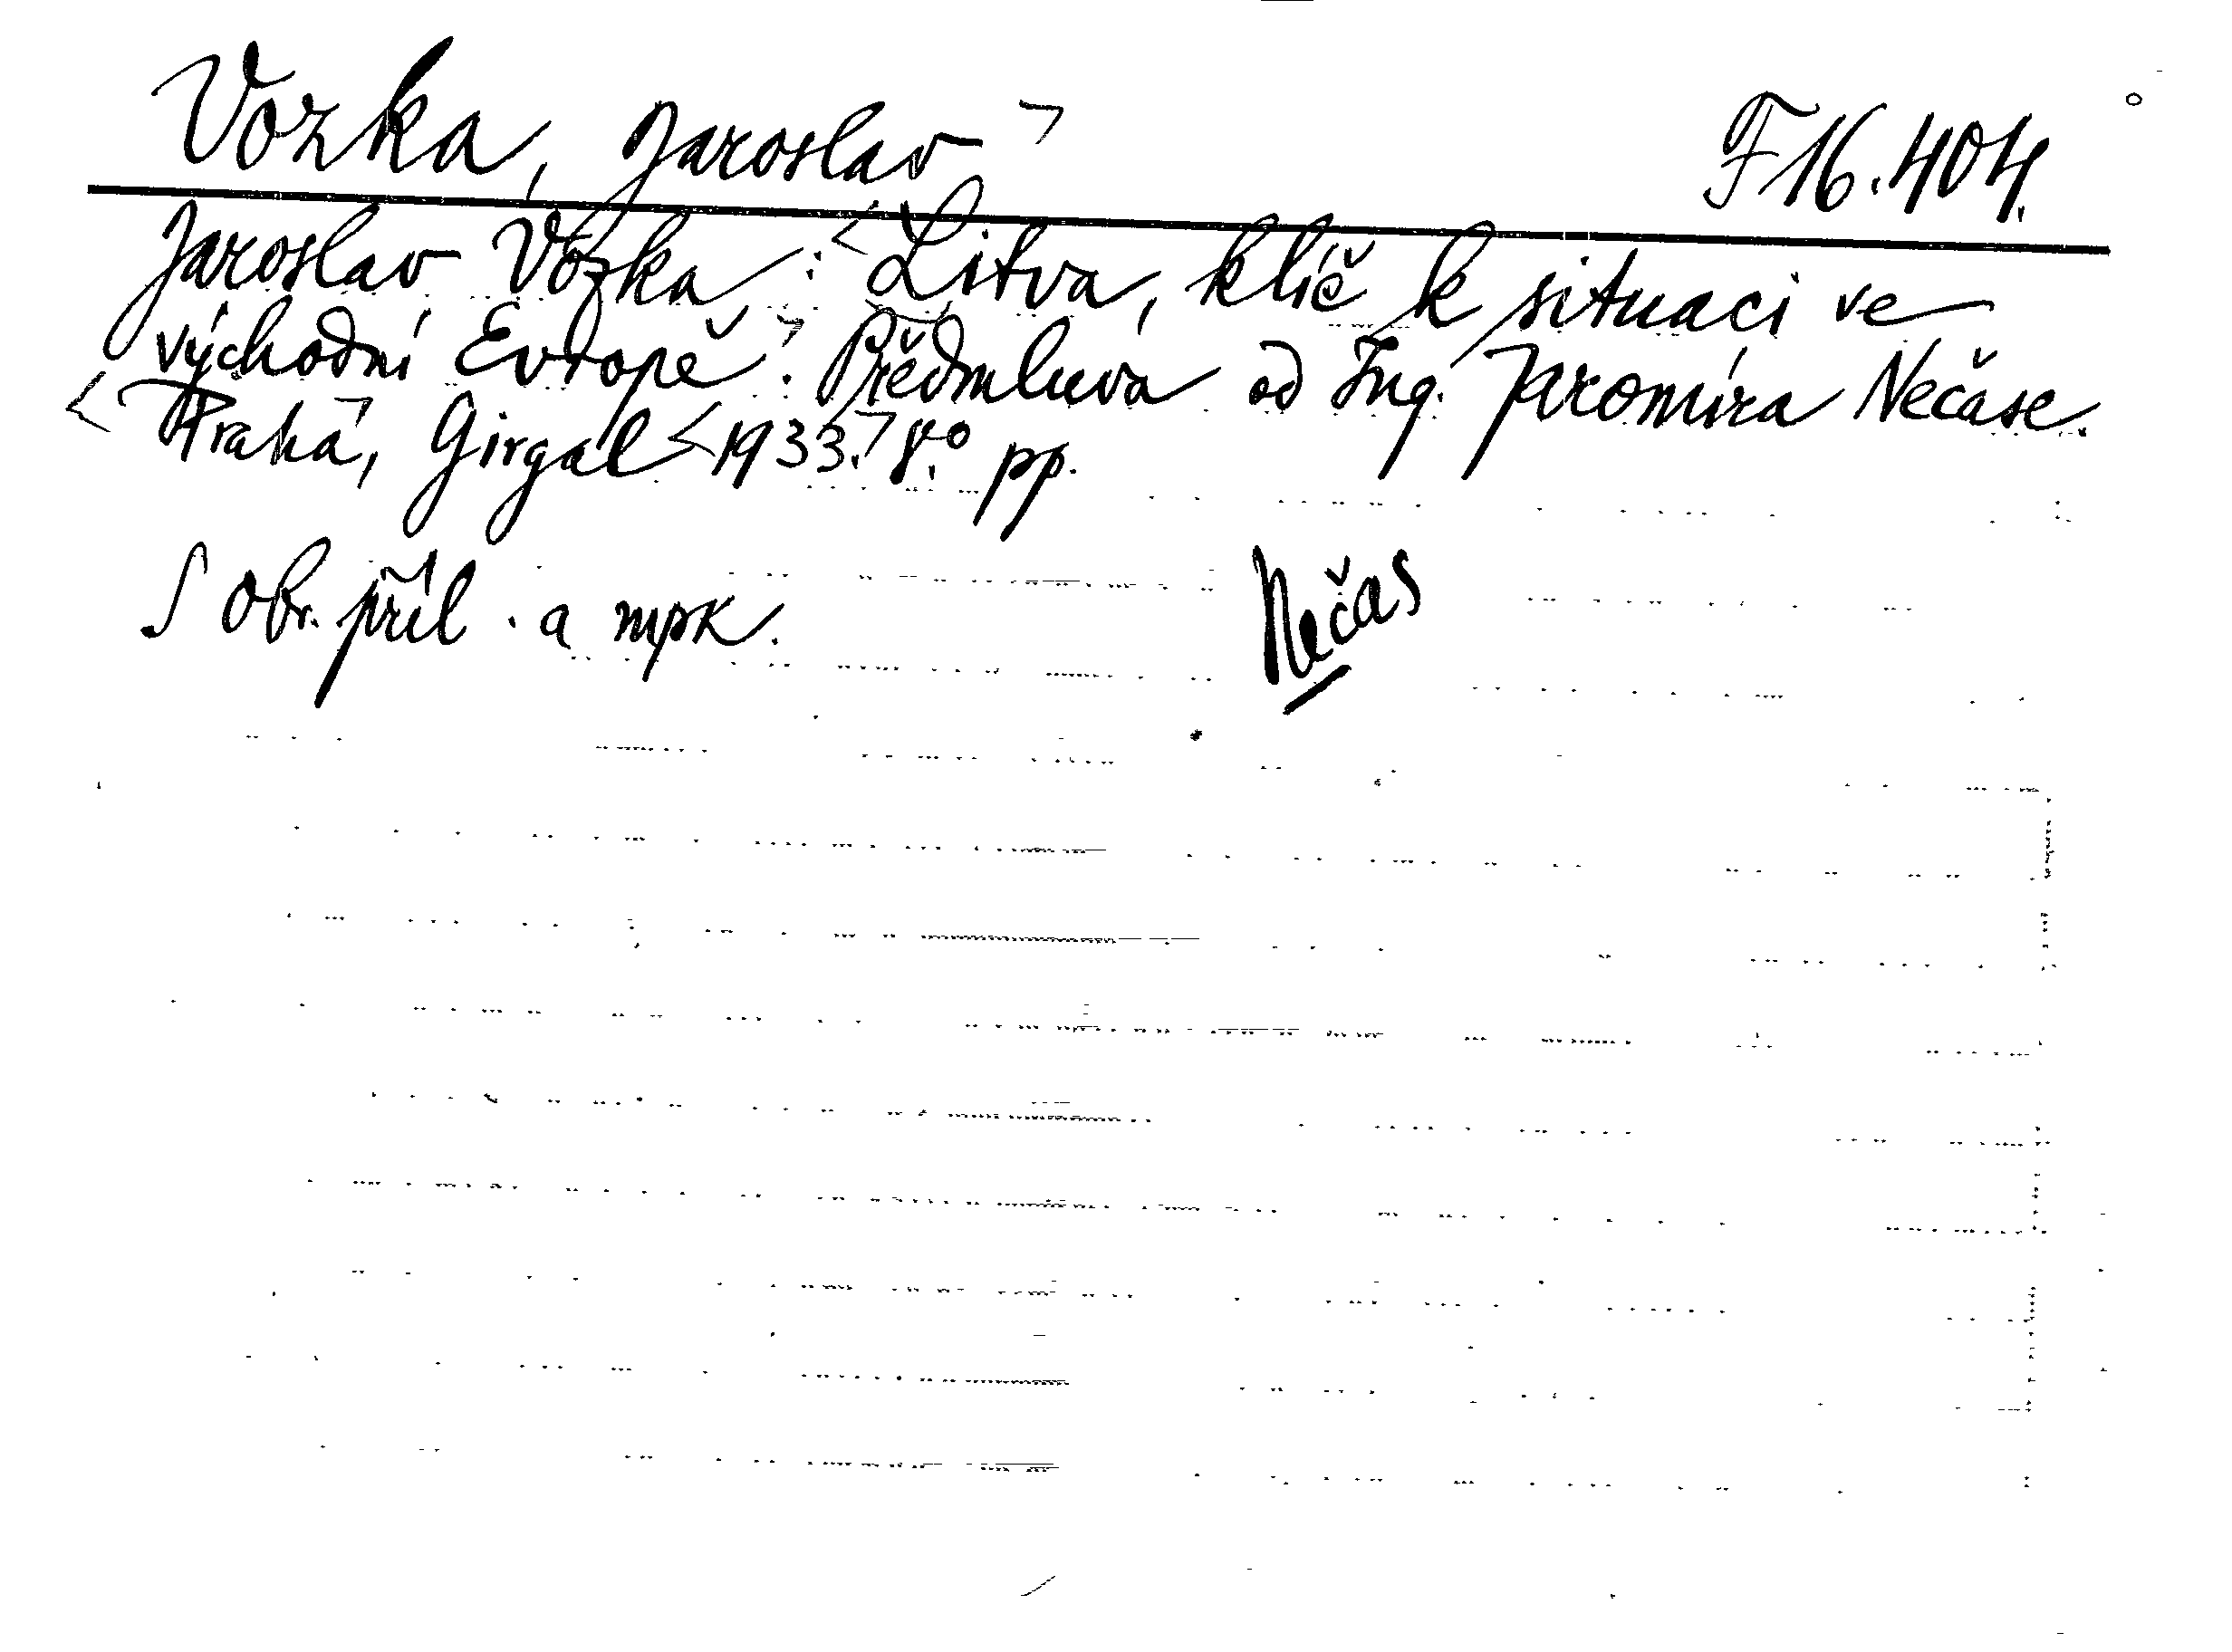 Vozka, Jaroslav F 16.404.
Jaroslav Vozka : Litva, klíč k situaci ve
východní Evropě. Předmluva od Ing. Jaromíra Nečase.
Praha, Girgal 1933. 8.° pp.
S obr. příl. a mpk.
Nečas